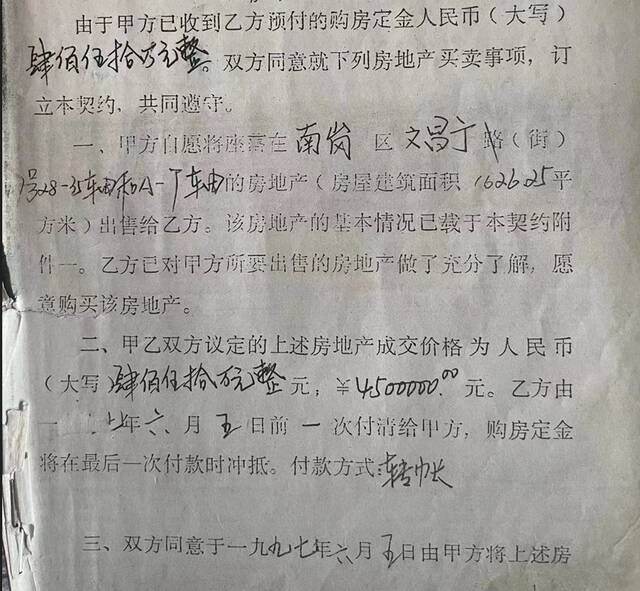 由于甲方已收到乙方预付的购房定金人民币（大写）
肆佰伍拾万元整。双方同意就下列房地产买卖事项，订
立本契约，共同遵守。
一、甲方自愿将座落在南岗区文昌 路（街）
号28-35车由和A-丁车由的房地产（房屋建筑面积1626.25平
方米）出售给乙方。该房地产的基本情况已载于本契约附
件一。乙方已对甲方所要出售的房地产做了充分了解，愿
意购买该房地产。
二、甲乙双方议定的上述房地产成交价格为人民币
（大写）肆佰伍拾万元整元；￥4500000.00元。乙方由
一 七年六月五日前一次付清给甲方，购房定金
将在最后一次付款时冲抵。付款方式：转帐
三、双方同意于一九九七年六月五日由甲方将上述房